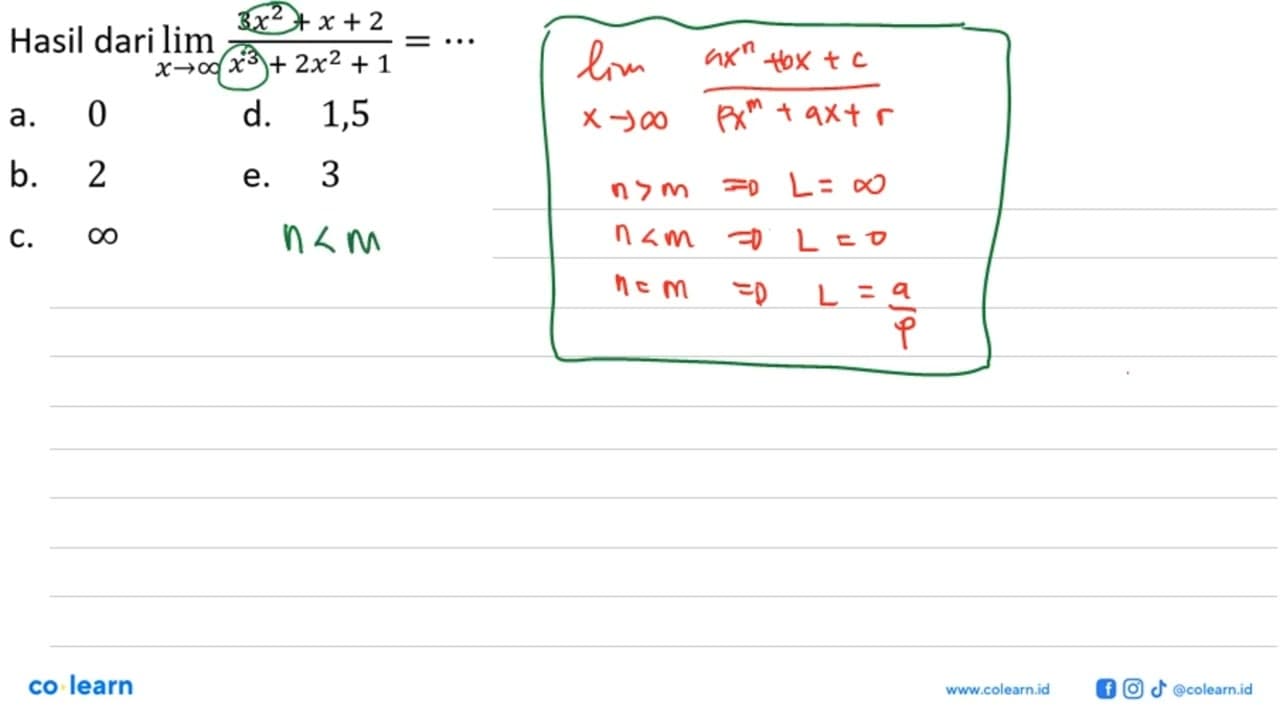 Hasil dari lim x→∞ (3x² + x + 2)/(x³ + 2x² + 1) = ⋯
a. 0 d. 1,5
b. 2 e. 3
c. ∞
n < m
lim x→∞ (ax^n + bx + c)/(px^m + qx + r)
n > m ⇒ L = ∞
n < m ⇒ L = 0
n = m ⇒ L = a/p
co learn
www.colearn.id
@colearn.id